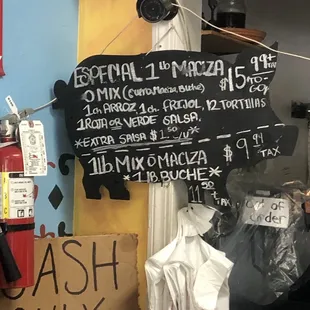 ESPECIAL 1 lb MACIZA
O MIX (CUERO, Maciza, Buche)
1 ch ARROZ 1 ch. FRIJOL, 12 TORTILLAS
1 ROJA OR VERDE SALSA.
*EXTRA SALSA $1.50 c/u*
$15.99 +TAX
TO-GO
1 lb. MIX Ó MACIZA $9.99 +TAX
*1 LB BUCHE* 11.50 +TAX
Out of
order
CASH
ONLY